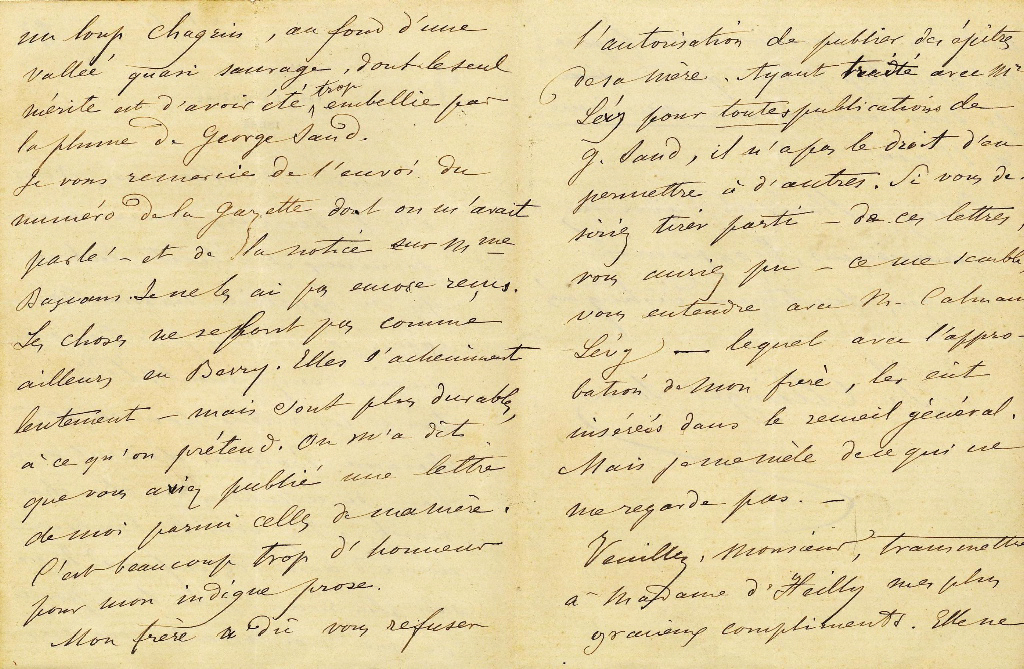 un loup chagrin, au fond d'une
vallée quasi sauvage, dont le seul
mérite est d'avoir été trop embellie par
la plume de George Sand.
Je vous remercie de l'envoi du
numéro de la Gazette dont on m'avait
parlé - et de la notice sur Mme
Je ne les ai pas encore reçus.
Les choses ne se font pas comme
ailleurs en Berry. Elles s'acheminent
lentement - mais sont plus durables,
à ce qu'on prétend. On m'a dit
que vous aviez publié une lettre
de moi parmi celles de ma mère.
C'est beaucoup trop d'honneur
pour mon indigne prose.
Mon frère a dû vous refuser
l'autorisation de publier des épitres
de sa mère. Ayant traité avec Mr
Lévy pour toutes publications de
G. Sand, il n'a pas le droit d'en
permettre à d'autres. Si vous dé-
siriez tirer parti - de ces lettres,
vous auriez pu - ce me semble,
vous entendre avec M. Calman
Lévy - lequel avec l'appro-
bation de mon frère, les eût
insérées dans le recueil général.
Mais je me mêle de ce qui ne
me regarde pas. -
Veuillez, Monsieur, transmettre
à Madame d'Heilly mes plus
gracieux compliments. Elle ne